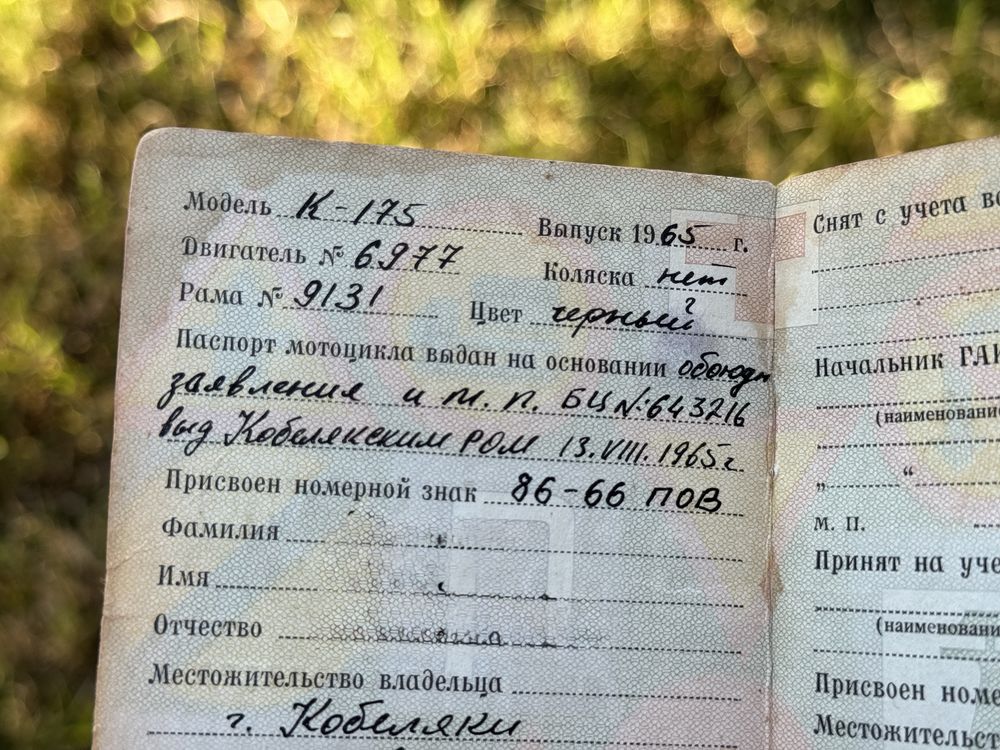 Модель К-175 Выпуск 1965 г.
Двигатель № 6977 Коляска нет
Рама № 9131 Цвет черный
Паспорт мотоцикла выдан на основании обоюдн
заявления и т. п. БЦ №:643216
выд Кобелякским РОМ 13.VIII.1965г.
Присвоен номерной знак 86-66 ПОВ
Фамилия
Имя
Отчество
Местожительство владельца
г. Кобеляки
Снят с учета
Начальник ГАИ
(наименование
„ “
м. п.
Принят на уче
(наименовани
Присвоен номе
Местожительст